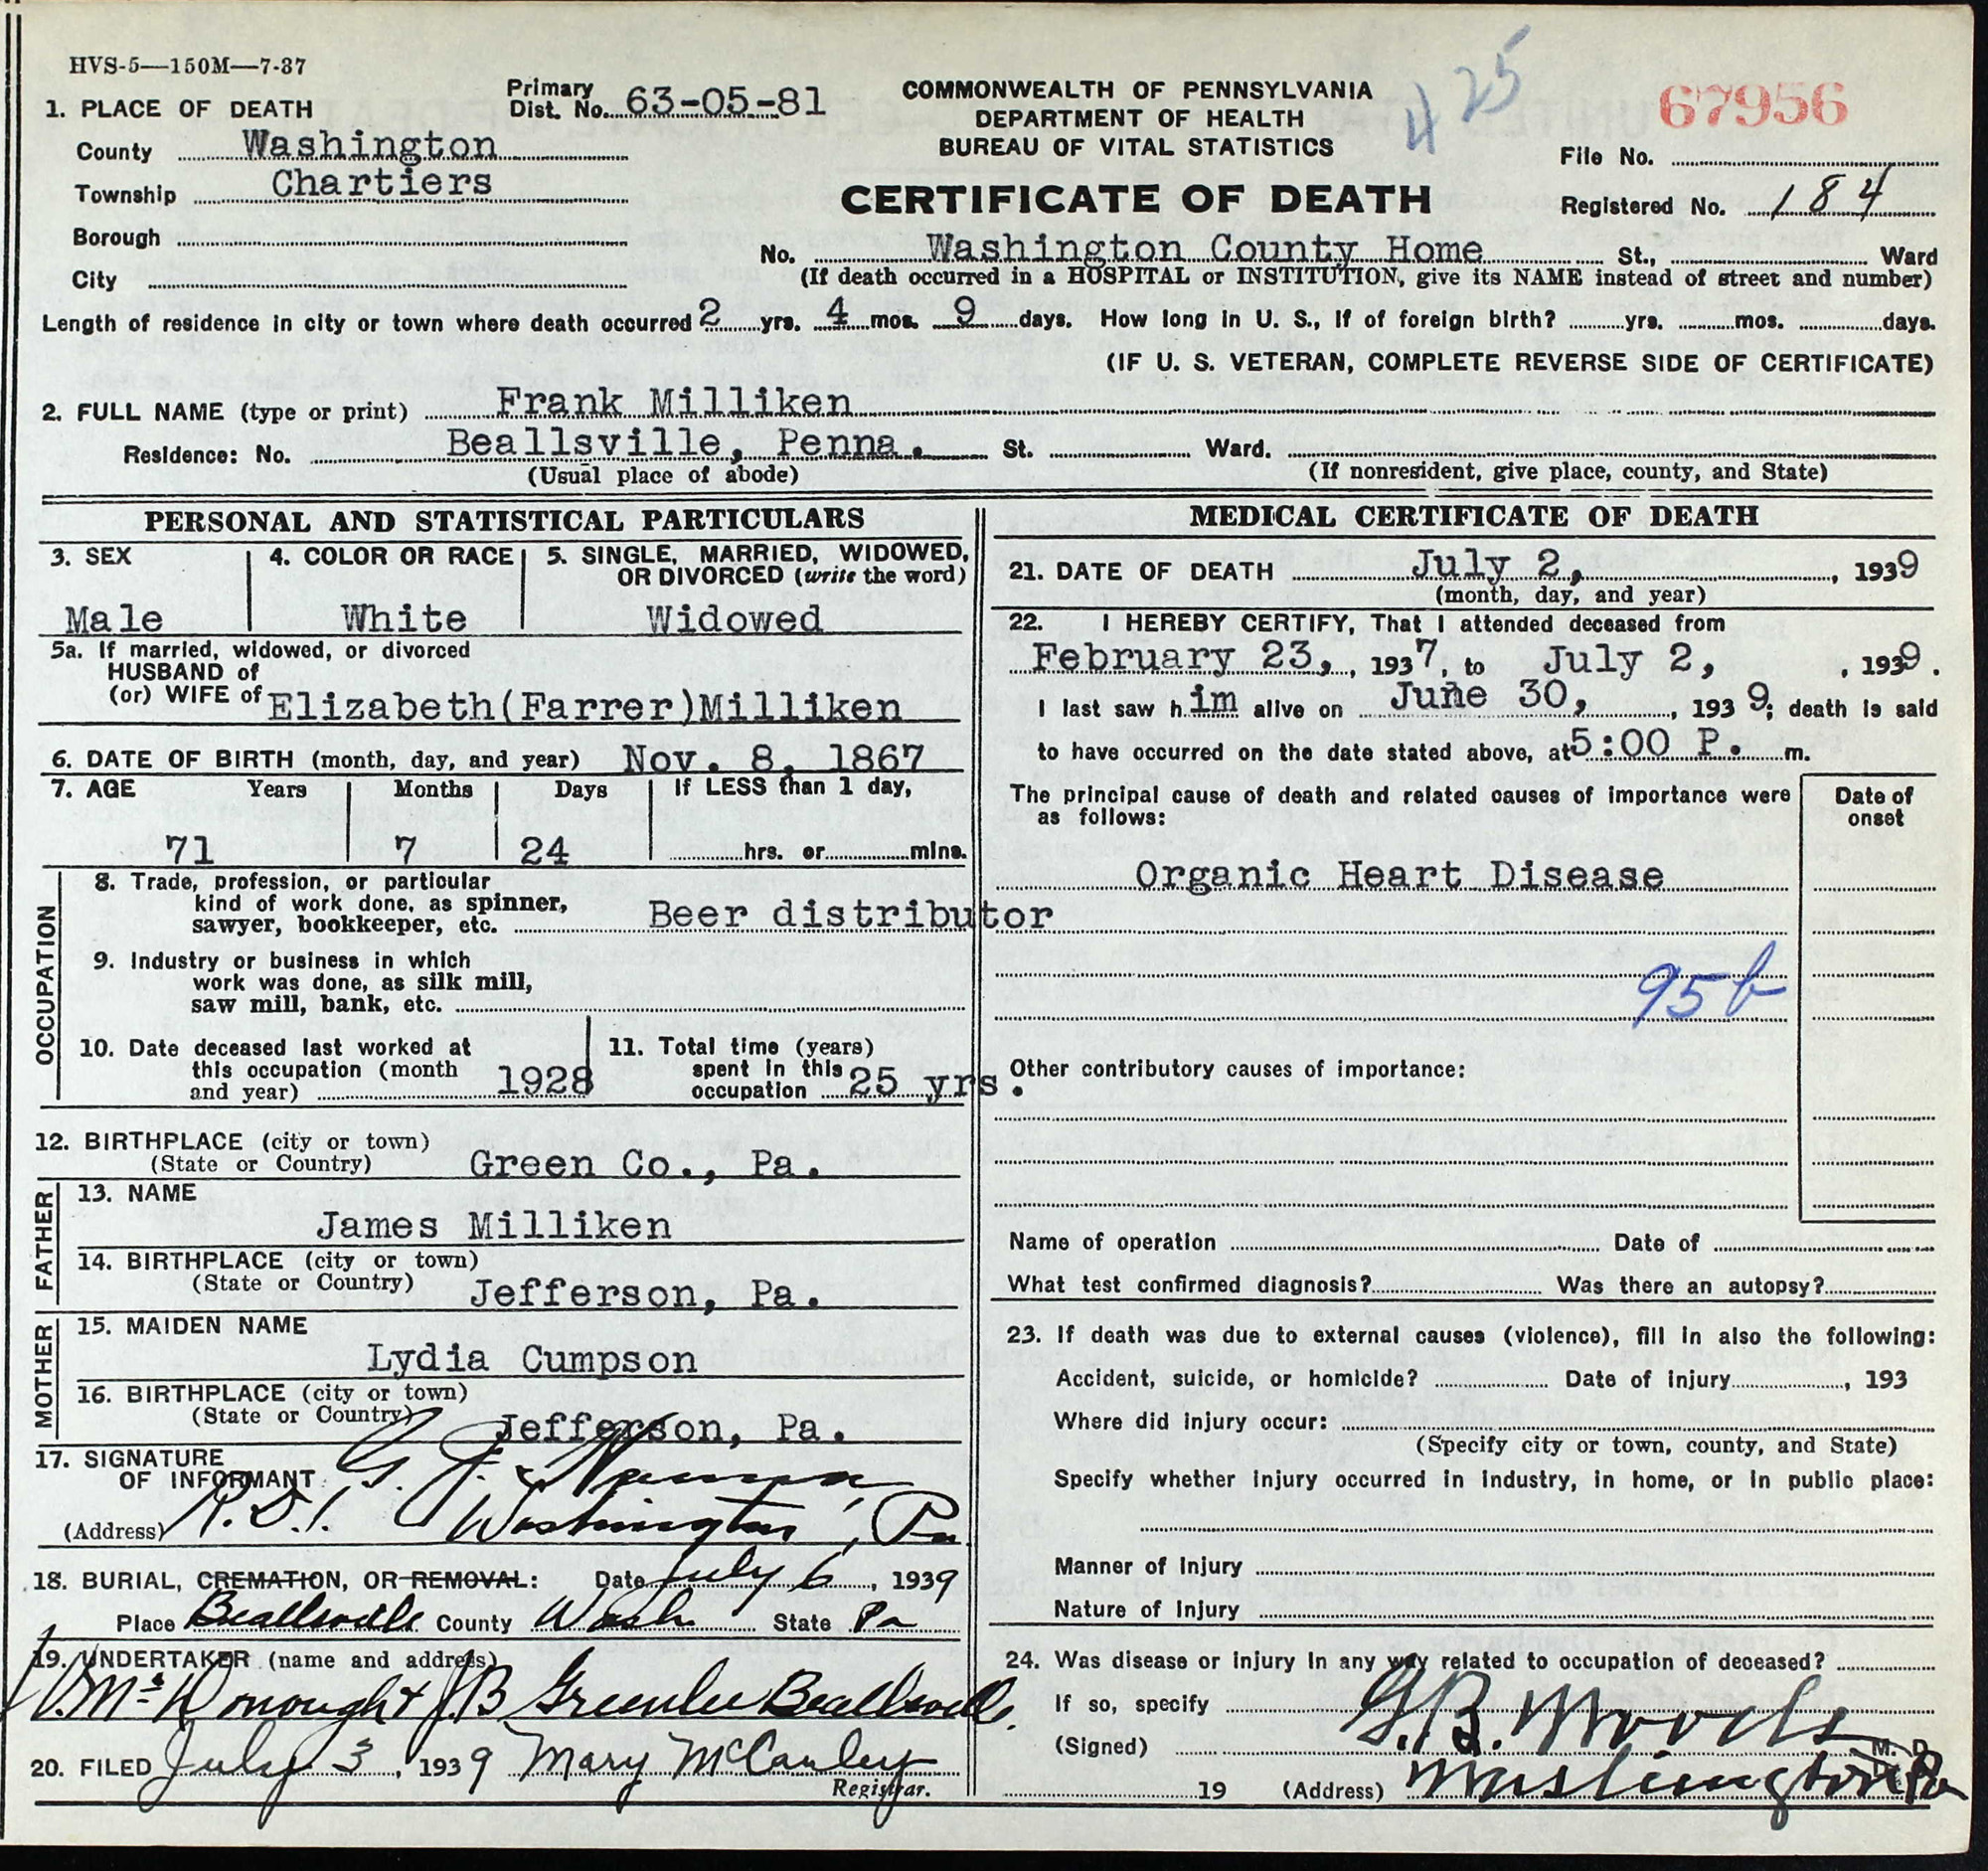 HVS-5—150M—7-37
425
67956
1. PLACE OF DEATH
Primary Dist. No. 63-05-81
County Washington
Township Chartiers
Borough
City
COMMONWEALTH OF PENNSYLVANIA
DEPARTMENT OF HEALTH
BUREAU OF VITAL STATISTICS
CERTIFICATE OF DEATH
File No.
Registered No. 184
No. Washington County Home St., Ward
(If death occurred in a HOSPITAL or INSTITUTION, give its NAME instead of street and number)
Length of residence in city or town where death occurred 2 yrs. 4 mos. 9 days. How long in U. S., if of foreign birth? yrs. mos. days.
(IF U. S. VETERAN, COMPLETE REVERSE SIDE OF CERTIFICATE)
2. FULL NAME (type or print) Frank Milliken
Residence: No. Beallsville, Penna. St. Ward.
(Usual place of abode) (If nonresident, give place, county, and State)
PERSONAL AND STATISTICAL PARTICULARS
3. SEX
Male
4. COLOR OR RACE
White
5. SINGLE, MARRIED, WIDOWED,
OR DIVORCED (write the word)
Widowed
5a. If married, widowed, or divorced
HUSBAND of
(or) WIFE of Elizabeth(Farrer)Milliken
6. DATE OF BIRTH (month, day, and year) Nov. 8, 1867
7. AGE Years Months Days If LESS than 1 day,
71 7 24 hrs. or mins.
OCCUPATION
8. Trade, profession, or particular
kind of work done, as spinner,
sawyer, bookkeeper, etc. Beer distributor
9. Industry or business in which
work was done, as silk mill,
saw mill, bank, etc.
10. Date deceased last worked at
this occupation (month
and year) 1928
11. Total time (years)
spent in this
occupation 25 yrs.
12. BIRTHPLACE (city or town)
(State or Country) Green Co., Pa.
FATHER
13. NAME
James Milliken
14. BIRTHPLACE (city or town)
(State or Country) Jefferson, Pa.
MOTHER
15. MAIDEN NAME
Lydia Cumpson
16. BIRTHPLACE (city or town)
(State or Country) Jefferson, Pa.
17. SIGNATURE
OF INFORMANT
(Address) R.D.1. Washington, Pa
18. BURIAL, CREMATION, OR REMOVAL: Date July 6, 1939
Place Beallsville County Wash State Pa
19. UNDERTAKER (name and address)
McDonough & J.B Greenlee Beallsville
20. FILED July 3, 1939 Mary McCauley
Registrar.
MEDICAL CERTIFICATE OF DEATH
21. DATE OF DEATH July 2, , 1939
(month, day, and year)
22. I HEREBY CERTIFY, That I attended deceased from
February 23, , 1937, to July 2, , 1939.
I last saw him alive on June 30, , 1939; death is said
to have occurred on the date stated above, at 5:00 P. m.
The principal cause of death and related causes of importance were
as follows:
Date of
onset
Organic Heart Disease
95b
Other contributory causes of importance:
Name of operation Date of
What test confirmed diagnosis? Was there an autopsy?
23. If death was due to external causes (violence), fill in also the following:
Accident, suicide, or homicide? Date of injury , 193
Where did injury occur:
(Specify city or town, county, and State)
Specify whether injury occurred in industry, in home, or in public place:
Manner of Injury
Nature of Injury
24. Was disease or injury in any way related to occupation of deceased?
If so, specify
(Signed) G.B. Woods M. D.
19 (Address) Washington Pa